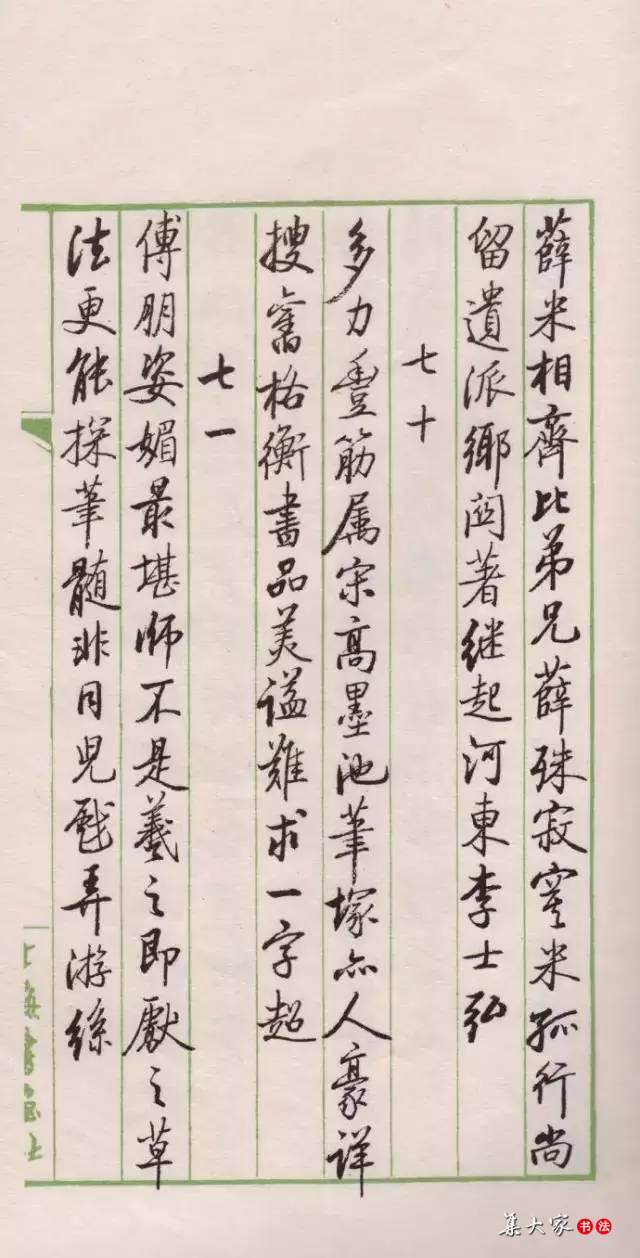 薛米相齊比弟兄薛殊寂寞米孤行尚
留遺派鄉閭著继起河東李士弘
七十
多力豊筋属宋高墨池筆塚亦人豪詳
搜舊格衡書品美谥難求一字超
七一
傅朋姿媚最堪师不是羲之即獻之草
法更能探筆髓非同兒戲弄游絲
上海書畫社
集大家书法